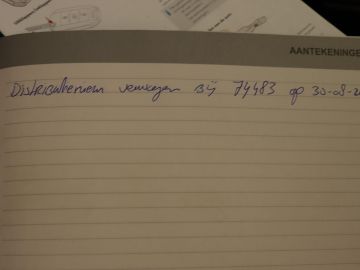 AANTEKENINGE
Distributieriem vervangen Bij 74483 op 30-08-2